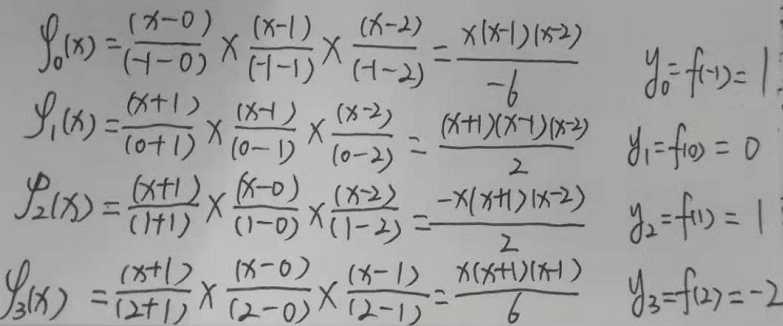 φ₀(x) = (x-0)/(-1-0) × (x-1)/(-1-1) × (x-2)/(-1-2) = x(x-1)(x-2)/-6 y₀=f(-1)= 1
φ₁(x) = (x+1)/(0+1) × (x-1)/(0-1) × (x-2)/(0-2) = (x+1)(x-1)(x-2)/2 y₁=f(0) = 0
φ₂(x) = (x+1)/(1+1) × (x-0)/(1-0) × (x-2)/(1-2) = -x(x+1)(x-2)/2 y₂=f(1) = 1
φ₃(x) = (x+1)/(2+1) × (x-0)/(2-0) × (x-1)/(2-1) = x(x+1)(x-1)/6 y₃=f(2)=-2